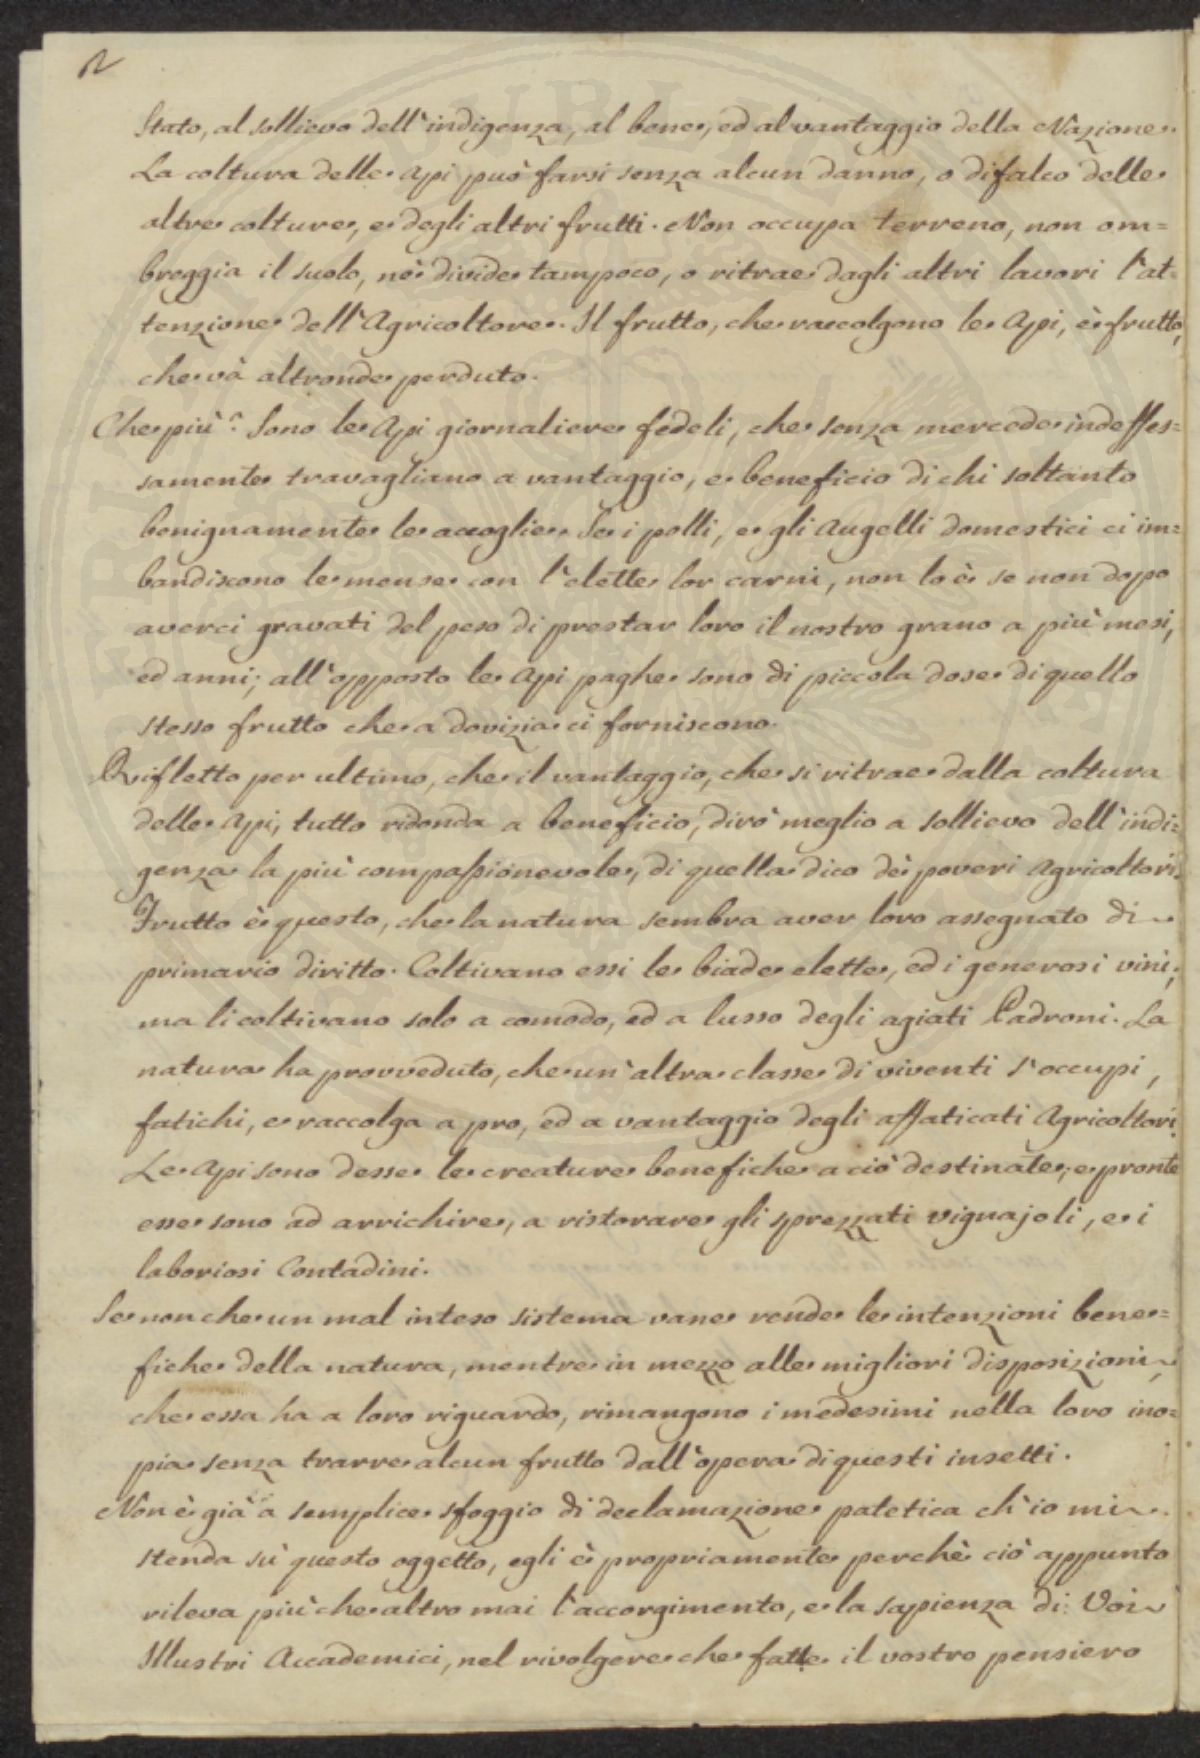 2
Stato, al sollievo dell'indigenza, al bene, ed al vantaggio della Nazione.
La coltura delle Api può farsi senza alcun danno, o difalco delle
altre colture, e degli altri frutti. Non occupa terreno, non om=
breggia il suolo, nè divide tampoco, o ritrae dagli altri lavori l'at=
tenzione dell'Agricoltore. Il frutto, che raccolgono le Api, è frutto,
che và altronde perduto.
Che più? Sono le Api giornaliere fedeli, che senza mercede indeffes=
samente travagliano a vantaggio, e beneficio di chi soltanto
benignamente le accoglie. Se i polli, e gli Augelli domestici ci im=
bandiscono le mense con l'elette lor carni, non lo è se non dopo
averci gravati del peso di prestar loro il nostro grano a più mesi,
ed anni; all'opposto le Api paghe sono di piccola dose di quello
stesso frutto che a dovizia ci forniscono.
Rifletto per ultimo, che il vantaggio, che si ritrae dalla coltura
delle Api, tutto ridonda a beneficio, dirò meglio a sollievo dell'indi=
genza la più compassionevole, di quella dico dè poveri Agricoltori.
Frutto è questo, che la natura sembra aver loro assegnato di
primario diritto. Coltivano essi le biade elette, ed i generosi vini;
ma li coltivano solo a comodo, ed a lusso degli agiati Padroni. La
natura ha provveduto, che un'altra classe di viventi s'occupi,
fatichi, e raccolga a pro, ed a vantaggio degli affaticati Agricoltori.
Le Api sono desse le creature benefiche a ciò destinate, e pronte
esse sono ad arrichire, a ristorare gli sprezzati vignajoli, e i
laboriosi Contadini.
Se non che un mal inteso sistema vane rende le intenzioni bene=
fiche della natura, mentre in mezzo alle migliori disposizioni,
che essa ha a loro riguardo, rimangono i medesimi nella loro ino=
pia senza trarre alcun frutto dall'opera di questi insetti.
Non è già a semplice sfoggio di declamazione patetica ch'io mi
stenda sù questo oggetto, egli è propriamente perchè ciò appunto
rileva più che altro mai l'accorgimento, e la sapienza di Voi
Illustri Accademici, nel rivolgere che fatte il vostro pensiero